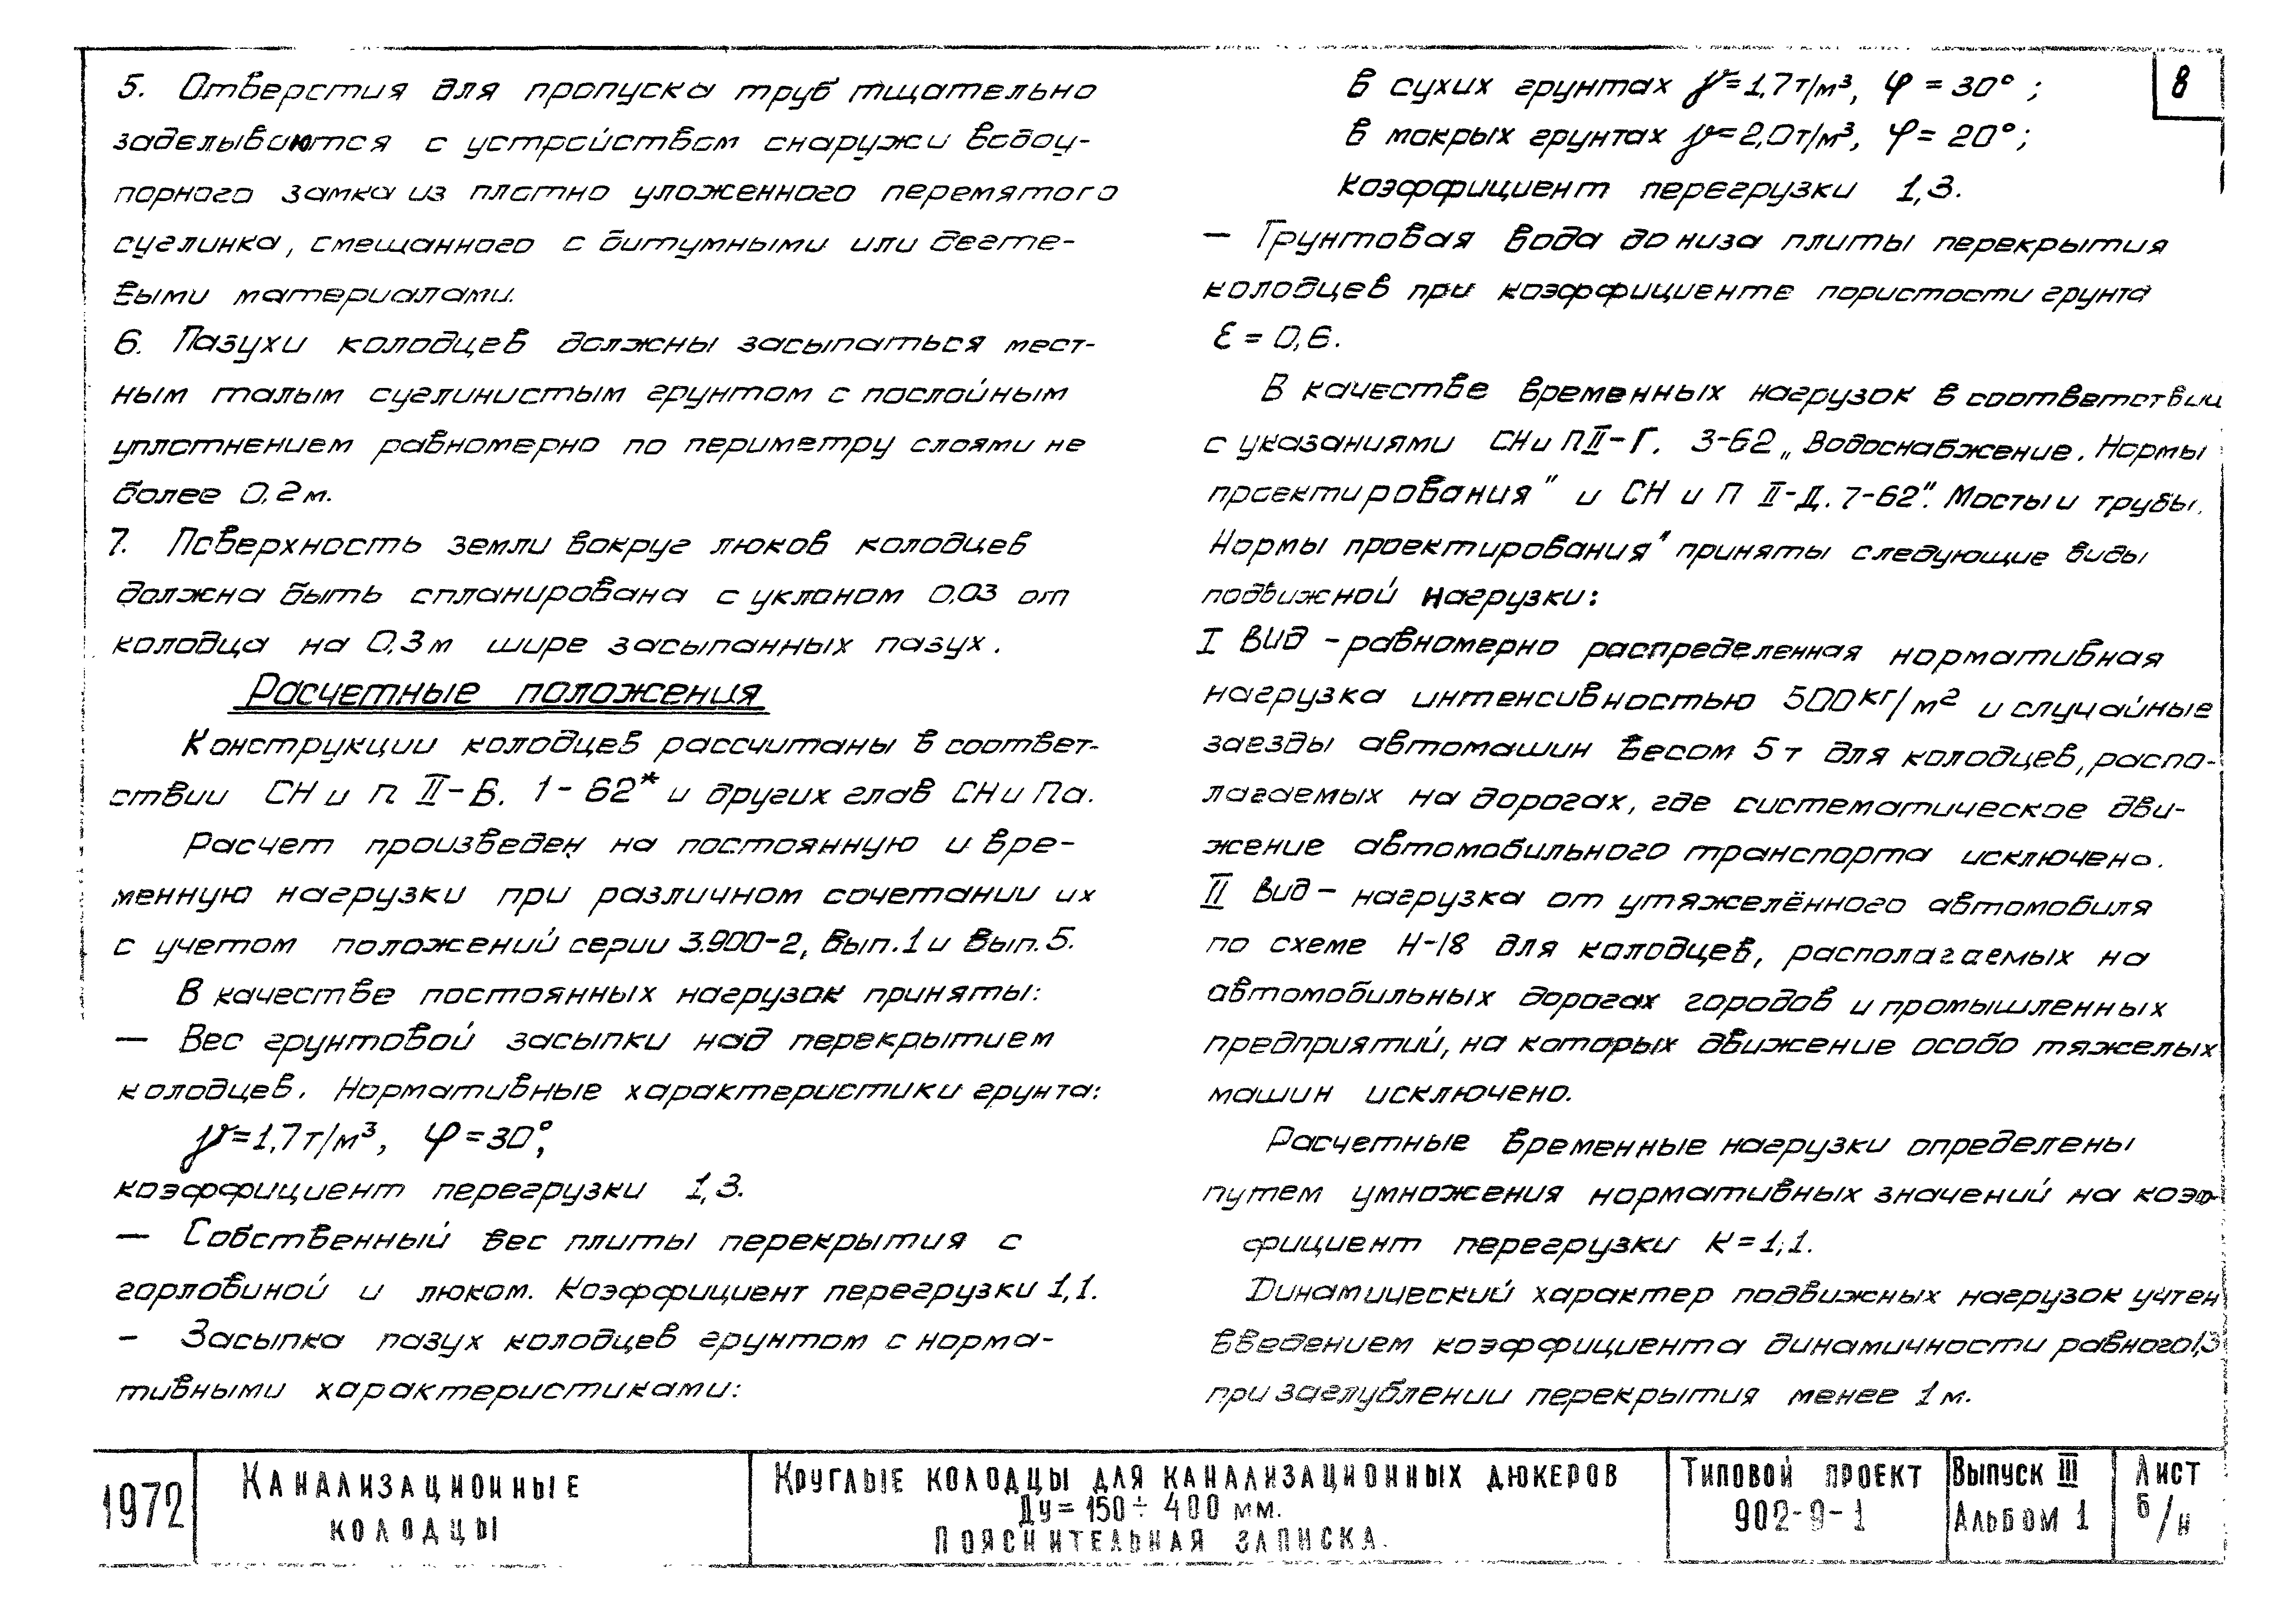 5. Отверстия для пропуска труб тщательно
заделываются с устройством снаружи водоу-
порного замка из плотно уложенного перемятого
суглинка, смешанного с битумными или дегте-
выми материалами.
6. Пазухи колодцев должны засыпаться мест-
ным талым суглинистым грунтом с послойным
уплотнением равномерно по периметру слоями не
более 0,2 м.
7. Поверхность земли вокруг люков колодцев
должна быть спланирована с уклоном 0,03 от
колодца на 0,3 м шире засыпанных пазух.
Расчетные положения
Конструкции колодцев рассчитаны в соответ-
ствии СН и П II-В. 1-62* и других глав СН и Па.
Расчет произведен на постоянную и вре-
менную нагрузки при различном сочетании их
с учетом положений серии 3.900-2, Вып. 1 и Вып. 5.
В качестве постоянных нагрузок приняты:
— Вес грунтовой засыпки над перекрытием
колодцев. Нормативные характеристики грунта:
γ=1,7 т/м³, φ=30°,
коэффициент перегрузки 1,3.
— Собственный вес плиты перекрытия с
горловиной и люком. Коэффициент перегрузки 1,1.
— Засыпка пазух колодцев грунтом с норма-
тивными характеристиками:
8
в сухих грунтах γ=1,7 т/м³, φ=30°;
в мокрых грунтах γ=2,0 т/м³, φ=20°;
коэффициент перегрузки 1,3.
— Грунтовая вода до низа плиты перекрытия
колодцев при коэффициенте пористости грунта
ε = 0,6.
В качестве временных нагрузок в соответствии
с указаниями СН и П II-Г. 3-62 „Водоснабжение. Нормы
проектирования" и СН и П II-Д. 7-62". Мосты и трубы.
Нормы проектирования" приняты следующие виды
подвижной нагрузки:
I вид - равномерно распределенная нормативная
нагрузка интенсивностью 500 кг/м² и случайные
заезды автомашин весом 5 т для колодцев, распо-
лагаемых на дорогах, где систематическое дви-
жение автомобильного транспорта исключено.
II вид - нагрузка от утяжелённого автомобиля
по схеме Н-18 для колодцев, располагаемых на
автомобильных дорогах городов и промышленных
предприятий, на которых движение особо тяжелых
машин исключено.
Расчетные временные нагрузки определены
путем умножения нормативных значений на коэф-
фициент перегрузки К=1,1.
Динамический характер подвижных нагрузок учтен
введением коэффициента динамичности равного 1,3
при заглублении перекрытия менее 1 м.
1972
Канализационные
колодцы
Круглые колодцы для канализационных дюкеров
Ду = 150 ÷ 400 мм.
Пояснительная записка.
Типовой проект
902-9-1
Выпуск III
Альбом 1
Лист
б/н